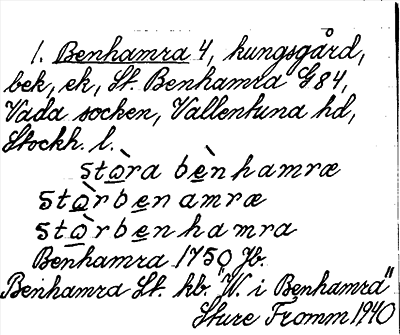 1. Benhamra 4, kungsgård,
bek, ek, St. Benhamra G84,
Vada socken, Vallentuna hd,
Stockh. l.
stò̲ra bè̲nhamræ
stò̲rbe̲namræ
stò̲rbe̲nhamra
Benhamra 1750 Jb.
Benhamra St. kb. "W. i Benhamra"
Sture Fromm 1940